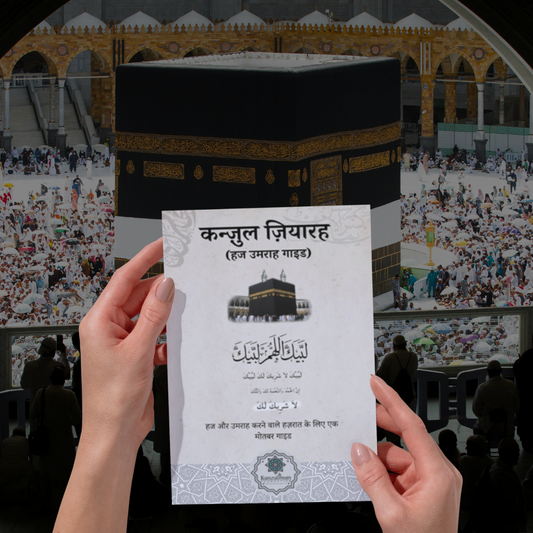 कन्ज़ुल ज़ियारह
(हज उमराह गाइड)
لبيك اللهم لبيك
لبيك لا شريك لك لبيك
إن الحمد والنعمة لك والملك
لا شريك لك
हज और उमराह करने वाले हज़रात के लिए एक
मोतबर गाइड